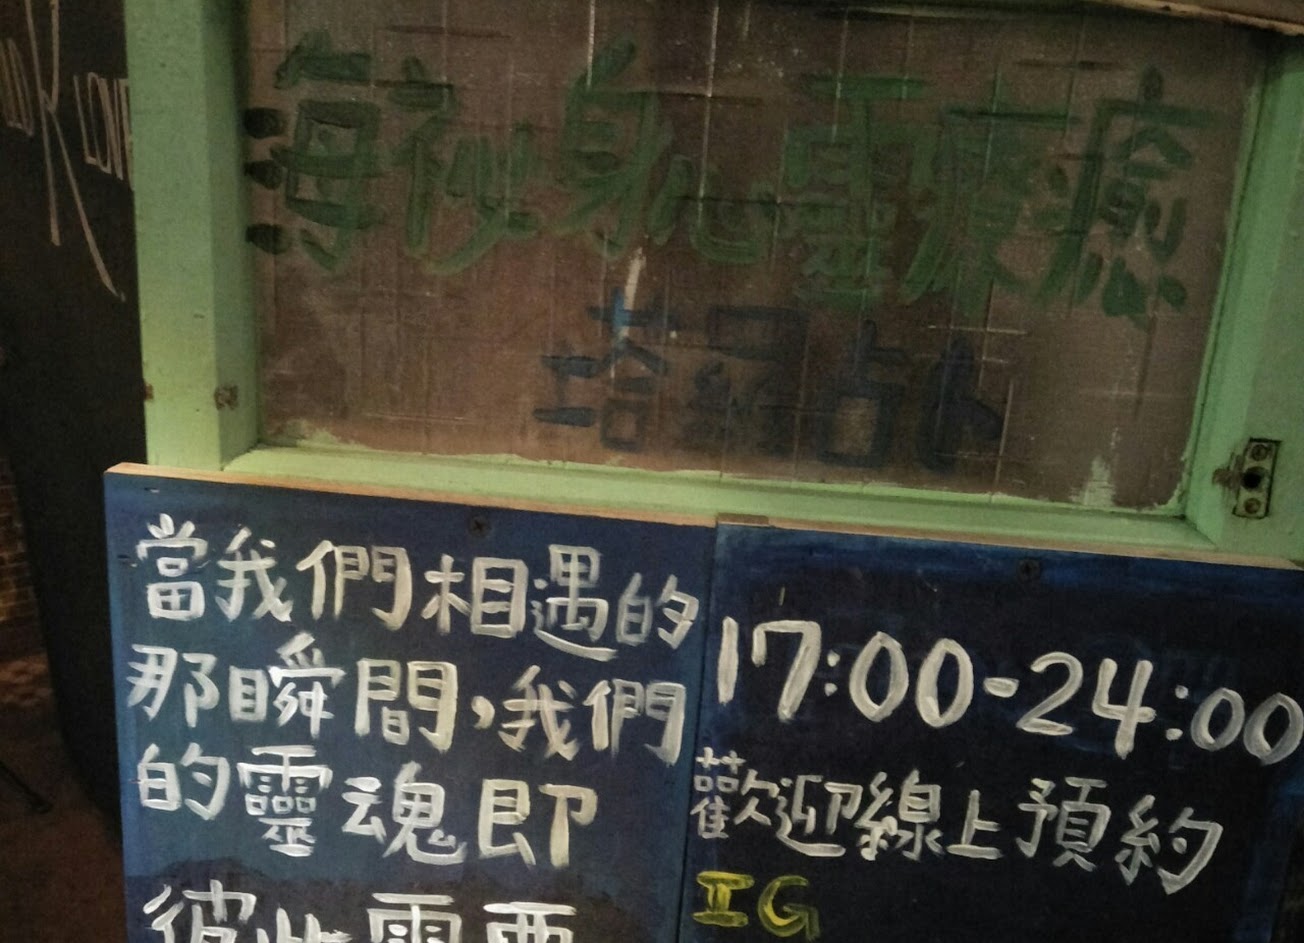 LOVE
海秘身心靈療癒
塔羅占卜
當我們相遇的
那瞬間，我們
的靈魂即
彼此需要
17:00-24:00
歡迎線上預約
IG